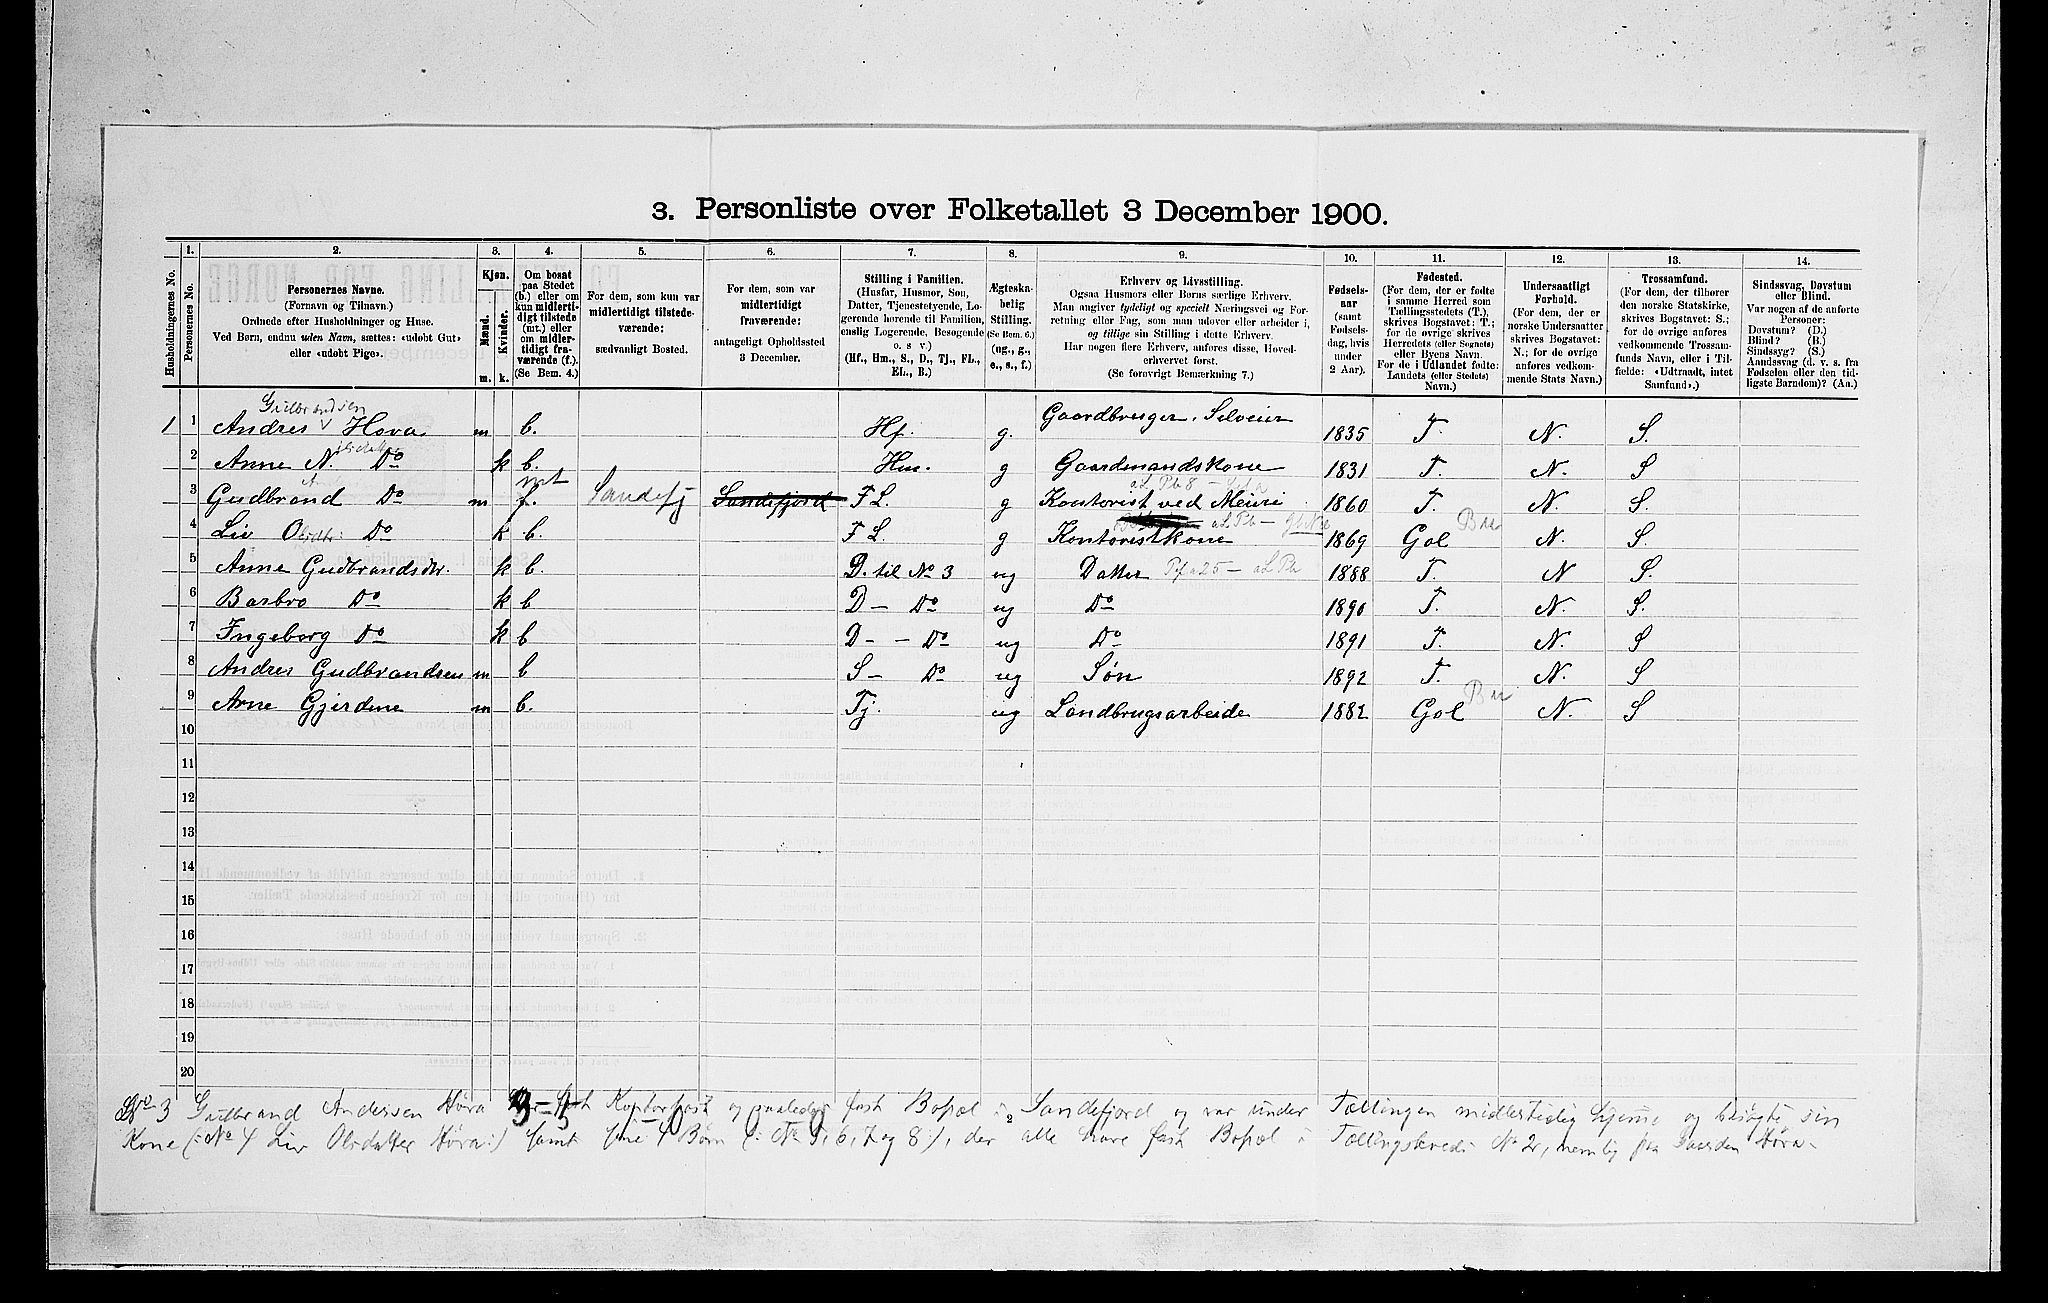 3. Personliste over Folketallet 3 December 1900.
1. 2. 3. 4. 5. 6. 7. 8. 9. 10. 11. 12. 13. 14.
Husholdningernes No.
Personernes No.
Personernes Navne.
(Fornavn og Tilnavn.)
Ordnede efter Husholdninger og Huse.
Ved Børn, endnu uden Navn, sættes: «udøbt Gut»
eller «udøbt Pige».
Kjøn.
Mænd.
Kvinder.
m. k.
Om bosat
paa Stedet
(b.) eller om
kun midlerti-
digt tilstede
(mt.) eller
om midler-
tidigt fra-
værende (f.).
(Se Bem. 4.)
For dem, som kun var
midlertidigt tilstede-
værende:
sædvanligt Bosted.
For dem, som var
midlertidigt
fraværende:
antageligt Opholdssted
3 December.
Stilling i Familien.
(Husfar, Husmor, Søn,
Datter, Tjenestetyende, Lo-
gerende hørende til Familien,
enslig Logerende, Besøgende
o. s v.)
(Hf., Hm., S., D., Tj., FL.,
EL., B.)
Ægteska-
belig
Stilling.
(Se Bem. 6.)
(ug., g.,
e., s., f.)
Erhverv og Livsstilling.
Ogsaa Husmors eller Børns særlige Erhverv.
Man angiver tydeligt og specielt Næringsvei og For-
retning eller Fag, som man udøver eller arbeider i,
og tillige sin Stilling i dette Erhverv.
Har nogen flere Erhverv, anføres disse, Hoved-
erhvervet først.
(Se forøvrigt Bemærkning 7.)
Fødsels-
aar
(samt
Fødsels-
dag, hvis
under
2 Aar).
Fødested.
(For dem, der er fødte
i samme Herred som
Tællingsstedets (T.),
skrives Bogstavet: T.;
for de øvrige skrives
Herredets (eller Sognets)
eller Byens Navn.
For de i Udlandet fødte:
Landets (eller Stedets)
Navn.)
Undersaatligt
Forhold.
(For dem, der er
norske Undersaatter
skrives Bogstavet:
N.; for de øvrige
anføres vedkom-
mende Stats Navn.)
Trossamfund.
(For dem, der tilhører
den norske Statskirke,
skrives Bogstavet: S.;
for de øvrige anføres
vedkommende Trossam-
funds Navn, eller i Til-
fælde: «Udtraadt, intet
Samfund».)
Sindssvag, Døvstum
eller Blind.
Var nogen af de anførte
Personer:
Døvstum? (D.)
Blind? (B.)
Sindssyg? (S.)
Aandssvag (d. v. s. fra
Fødselen eller den tid-
ligste Barndom)? (Aa.)
Gulbrandsen
1 1 Andres Hova m b. Hf. g. Gaardbruger, Selveier 1835 T. N. S.
2 Anne N. Do k b. Hm. g Gaardmandskone 1831 T. N. S
mt
3 Gudbrand A. Do m f. Sandefj Sandefjord F L. g Kontorist ved Meieri 1860 T. N. S.
4 Liv Olsdtr: Do k b. F L. g Kontoristkone 1869 Gol Bu N. S.
5 Anne Gudbrandsdtr. k b. D. til No 3 ug Datter 1888 T. N S.
6 Barbro Do k b D — Do ug Do 1890 T. N. S.
7 Ingeborg Do k b D — — Do ug Do 1891 T. N. S
8 Andres Gudbrandsen m b S — Do ug Søn 1892 T. N. S
9 Arne Gjerdene m b. Tj. ug Landbrugsarbeide 1882 Gol Bu N. S
10
11
12
13
14
15
16
17
18
19
20
No 3 Gudbrand Andersen Høva Kontorist og fast Bopæl i Sandefjord og var under Tællingen midlertidig hjemme og besøgte sin
Kone (: No 4 Liv Olsdatter Høva :) samt sine 4 Børn (: No 5, 6, 7 og 8 :), der alle have fast Bopæl i Tællingskreds No 2, nemlig paa Gaarden Høva.